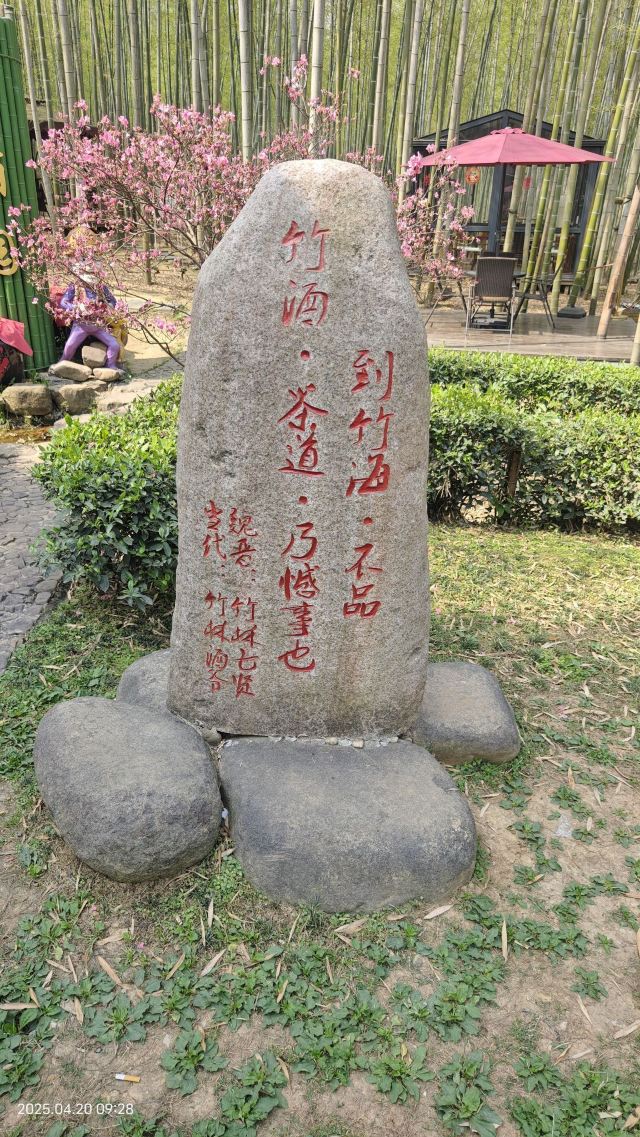 到竹海·不品
竹酒·茶道·乃憾事也
魏晋：竹林七贤
当代：竹林酒令
2025.04.20 09:28